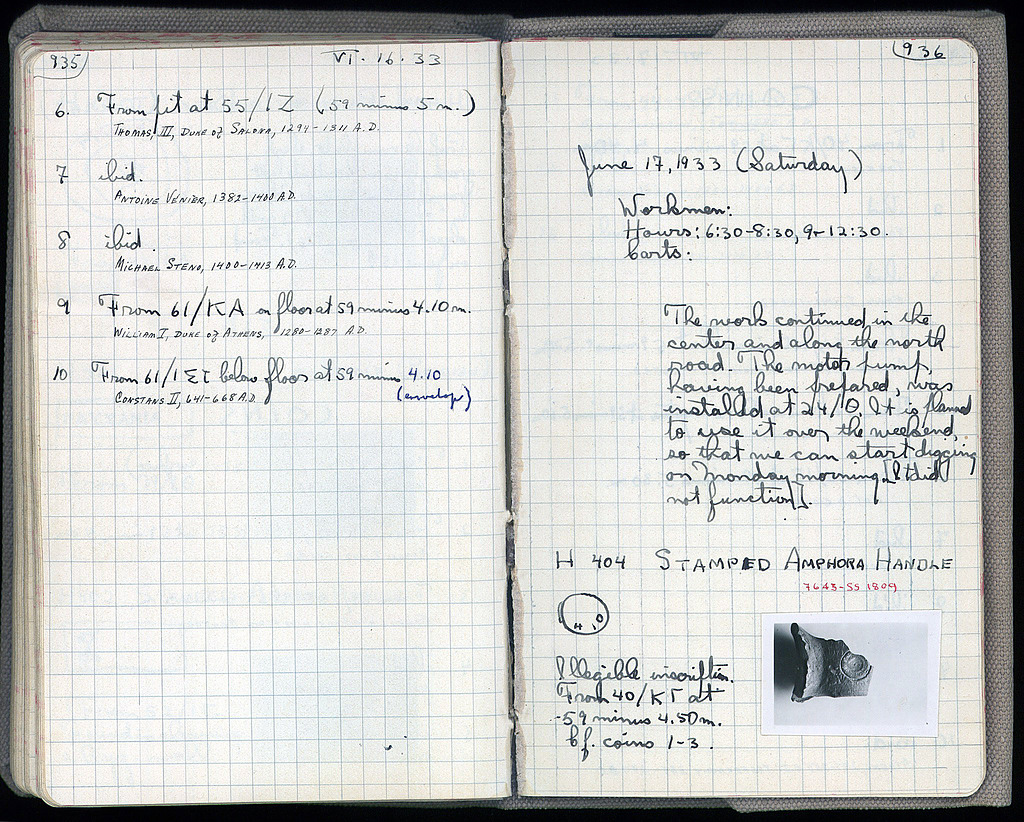 935
VI. 16. 33
6. From pit at 55/IZ (59 minus 5 m.)
THOMAS, III, DUKE of SALONA, 1294-1311 A.D.
7 ibid.
ANTOINE VENIER, 1382-1400 A.D.
8 ibid.
MICHAEL STENO, 1400-1413 A.D.
9 From 61/KA on floor at 59 minus 4.10 m.
WILLIAM I, DUKE of ATHENS, 1280-1287 A.D.
10 From 61/ below floor at 59 minus 4.10
CONSTANS II, 641-668 A.D.
(envelop)
936
June 17, 1933 (Saturday)
Workmen:
Hours: 6:30-8:30, 9-12:30.
Carts:
The work continued in the
center and along the north
road. The motor pump,
having been prepared, was
installed at 24/Θ. It is planned
to use it over the weekend,
so that we can start digging
on Monday morning. [It did
not function].
H 404 STAMPED AMPHORA HANDLE
7643-SS 1809
Illegible inscription.
From 40/ΚΓ at
-59 minus 4.50 m.
Cf. coins 1-3.